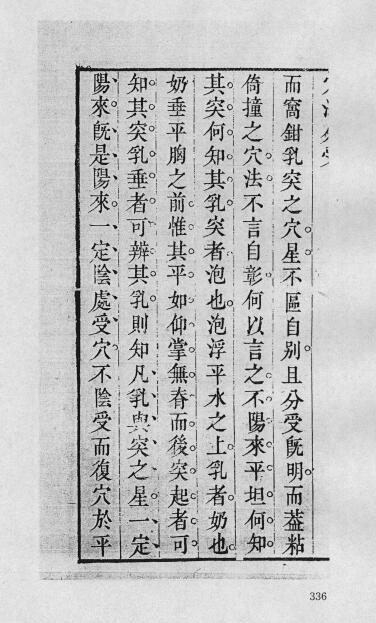 而窩鉗乳突之穴星不區自別且分受旣明而葢粘
倚撞之穴法不言自彰何以言之不陽來平坦何知
其突何知其乳突者泡也泡浮平水之上乳者奶也
奶垂平胸之前惟其平如仰掌無脊而後突起者可
知其突乳垂者可辨其乳則知凡乳與突之星一定
陽來旣是陽來一定陰處受穴不陰受而復穴於平
336